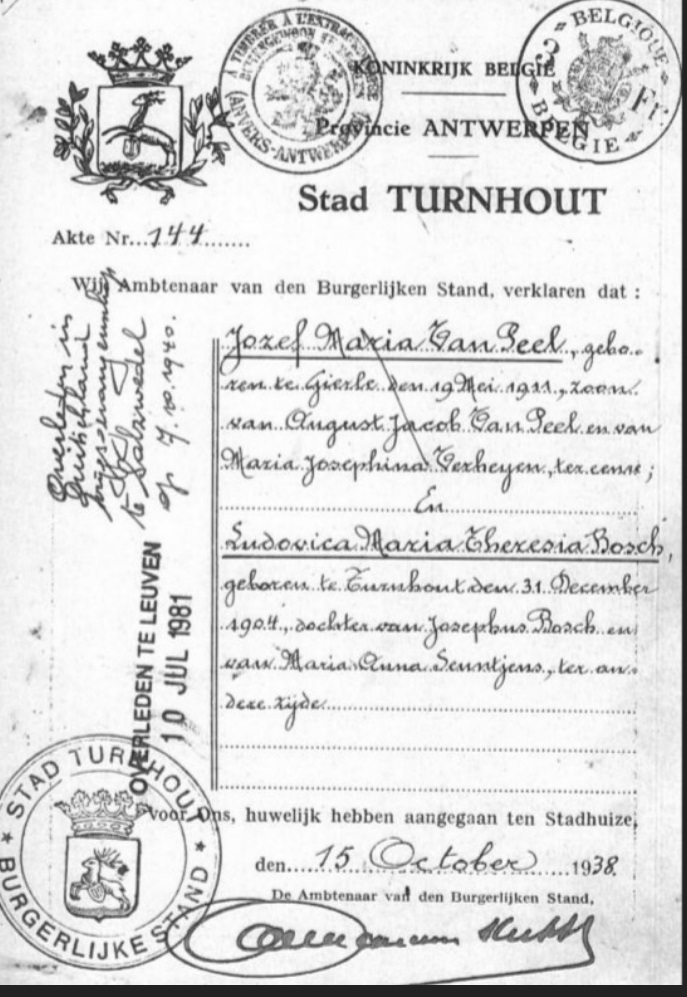 A TIMBRER À L'EXTRAORDINAIRE
(ANVERS-ANTWERPEN)
BELGIQUE
3 Fr
BELGIE
KONINKRIJK BELGIË
Provincie ANTWERPEN
Stad TURNHOUT
Akte Nr...144.......
Wij Ambtenaar van den Burgerlijken Stand, verklaren dat :
Jozef Maria Van Peel, gebo-
ren te Gierle den 19 Mei 1911, zoon
van August Jacob Van Peel en van
Maria Josephina Verheyen, ter eene;
En
Ludovica Maria Theresia Bosch,
geboren te Turnhout den 31 December
1904, dochter van Josephus Bosch en
van Maria Anna Seuntjens, ter an-
dere zijde
Overleden in
Duitschland
te Salzwedel
op 7.10.1940.
OVERLEDEN TE LEUVEN
10 JUL 1981
voor Ons, huwelijk hebben aangegaan ten Stadhuize,
den....15 October......1938.
De Ambtenaar van den Burgerlijken Stand,
STAD TURNHOUT
BURGERLIJKE STAND